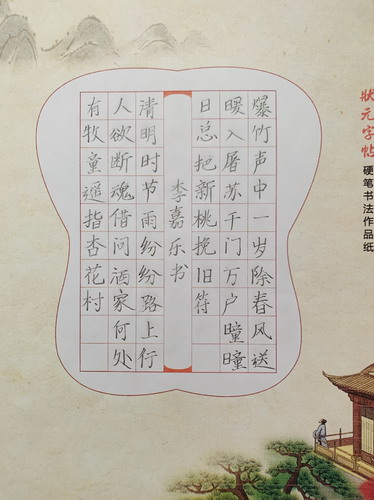 狀元字帖
硬笔书法作品纸
爆竹声中一岁除春风送
暖入屠苏千门万户瞳瞳
日总把新桃挽旧符
李嘉乐书
清明时节雨纷纷路上行
人欲断魂借问酒家何处
有牧童遥指杏花村